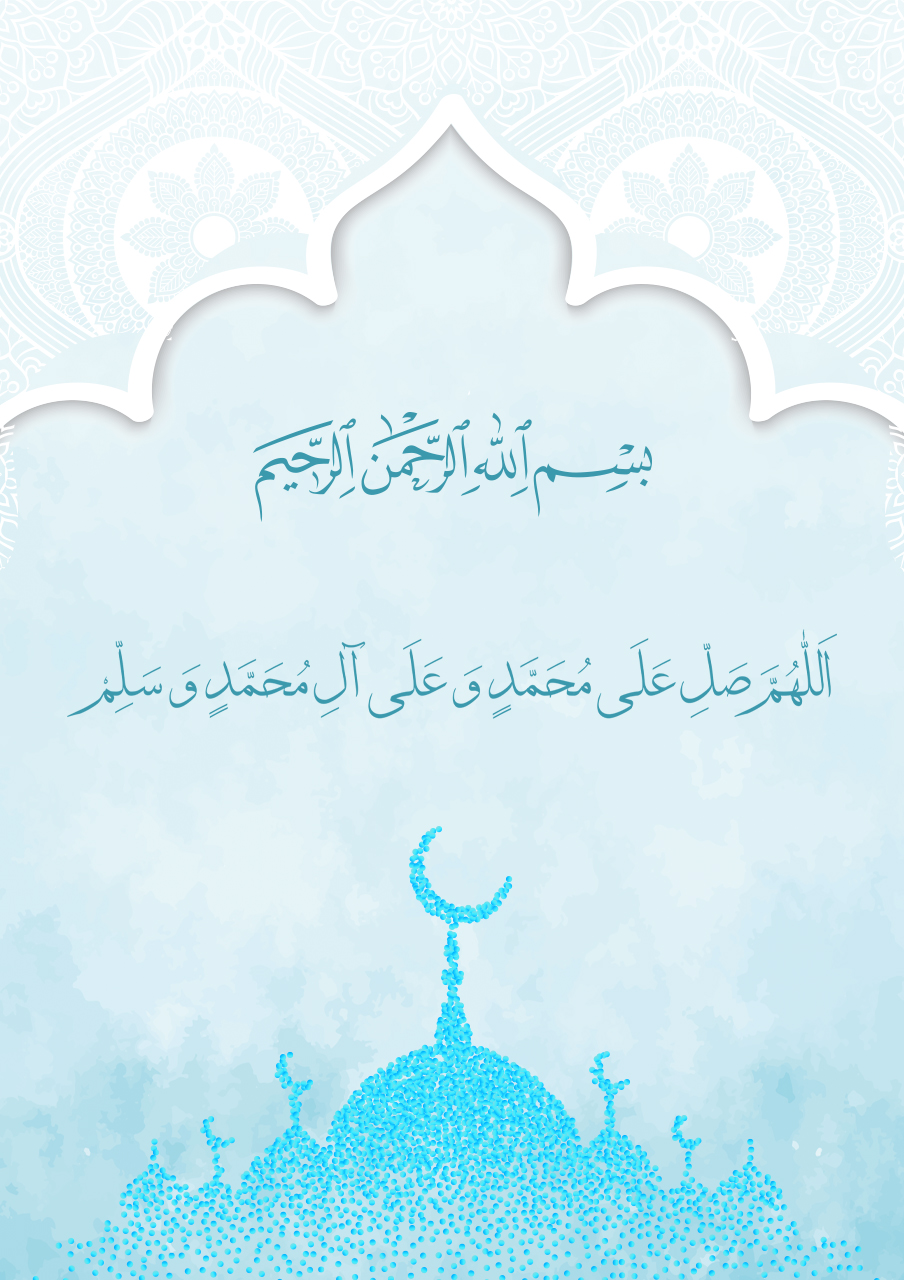 بِسْمِ اللهِ الرَّحْمٰنِ الرَّحِيمِ
اَللّٰهُمَّ صَلِّ عَلَى مُحَمَّدٍ وَ عَلَى آلِ مُحَمَّدٍ وَ سَلِّمْ